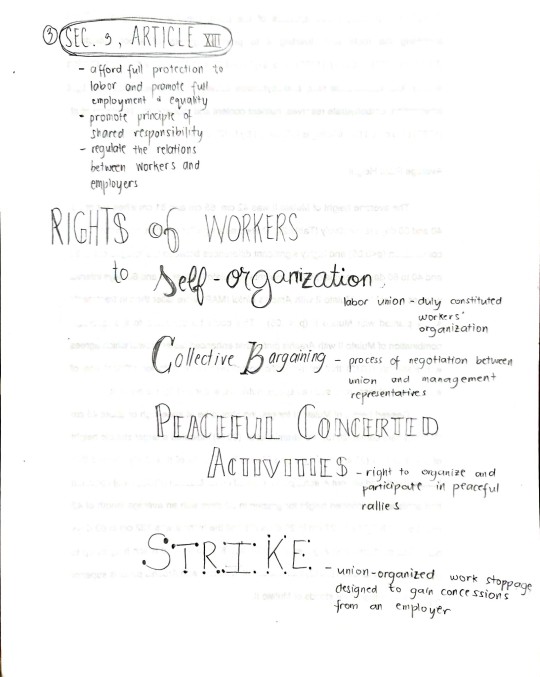 ③ SEC. 3, ARTICLE XIII
- afford full protection to
labor and promote full
employment & equality
- promote principle of
shared responsibility
- regulate the relations
between workers and
employers
RIGHTS of WORKERS
to Self-organization
labor union - duly constituted
workers'
organization
Collective Bargaining - process of negotiation between
union and management
representatives
PEACEFUL CONCERTED
ACTIVITIES - right to organize and
participate in peaceful
rallies
STRIKE - union-organized work stoppage
designed to gain concessions
from an employer